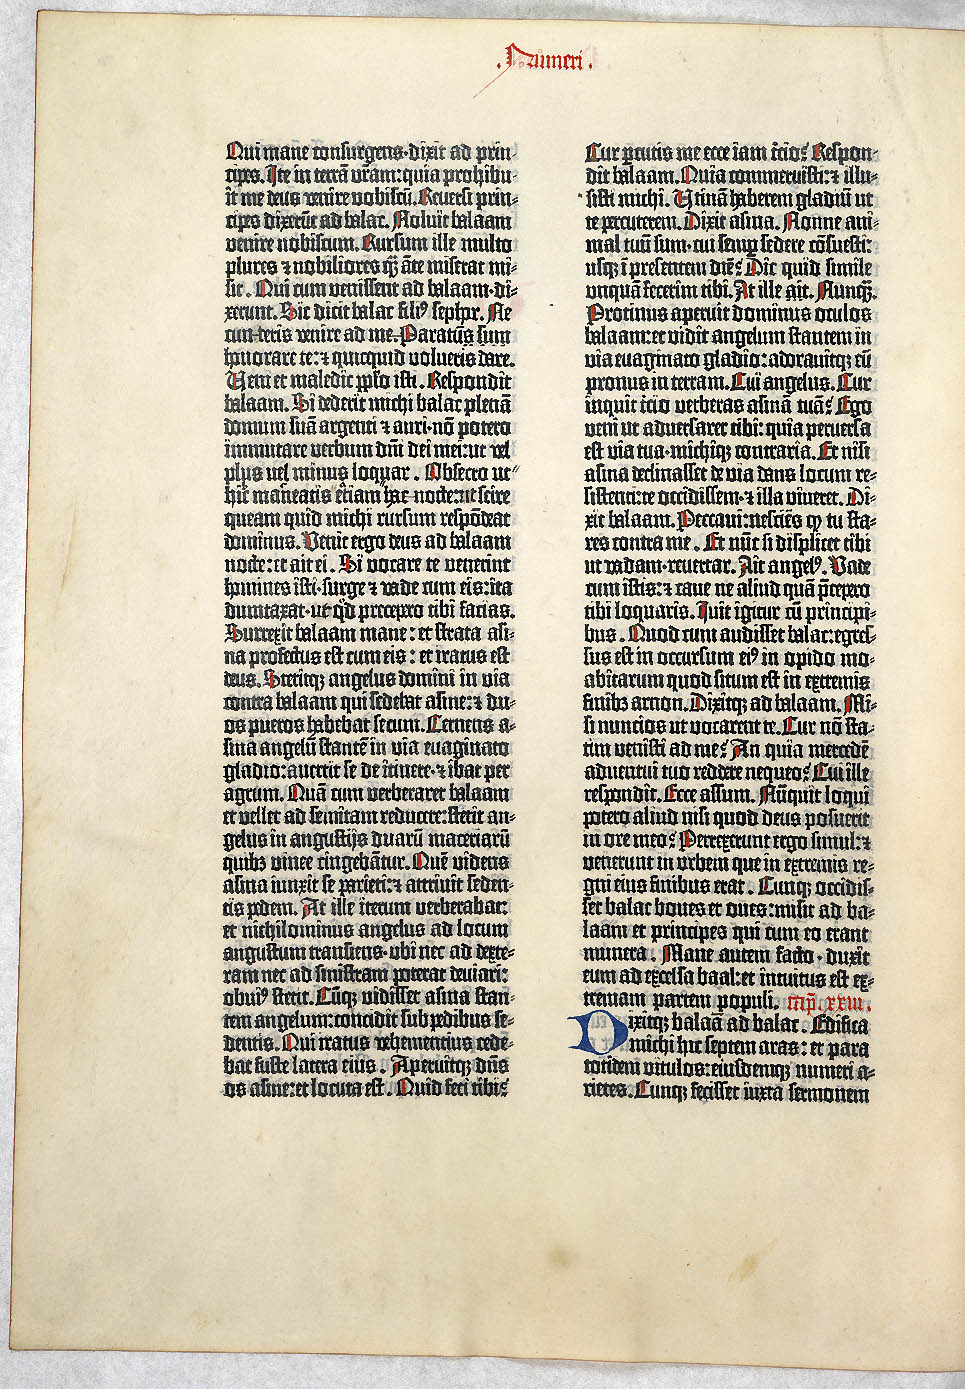 .Numeri.
Qui mane consurgens·dixit ad prin-
cipes. Ite in terrā vrām:quia prohibu-
it me deus venire vobiscū. Reuersi prin-
cipes dixerūt ad balac. Noluit balaam
venire nobiscum. Rursum ille multo
plures ⁊ nobiliores qꝫ āte miserat mi-
sit. Qui cum venissent ad balaam·di-
xerunt. Sic dicit balac filiꝰ sephor. Ne
cuncteris venire ad me. Paratus sum
honorare te:⁊ quicquid volueris dare.
Veni et maledic pplo isti. Respondit
balaam. Si dederit michi balac plenā
domum suā argenti ⁊ auri·nō potero
immutare verbum dñi dei mei:ut vel
plus vel minus loquar. Obsecro ut
hic maneatis etiam hac nocte:ut scire
queam quid michi rursum respōdeat
dominus. Venit ergo deus ad balaam
nocte:et ait ei. Si vocare te venerint
homines isti·surge ⁊ vade cum eis:ita
dumtaxat·ut qd̄ precepero tibi facias.
Surrexit balaam mane: et strata asi-
na profectus est cum eis: et iratus est
deus. Stetitqꝫ angelus domini in via
contra balaam qui sedebat asine:⁊ du-
os pueros habebat secum. Cernens a-
sina angelū stantē in via euaginato
gladio:auertit se de itinere·⁊ ibat per
agrum. Quā cum verberaret balaam
et vellet ad semitam reducere:stetit an-
gelus in angustijs duarū maceriarū
quibꝫ vinee cingebātur. Quē videns
asina iunxit se parieti:⁊ attriuit seden-
tis pedem. At ille iterum verberabat:
et nichilominus angelus ad locum
angustum transiens·ubi nec ad dexte-
ram nec ad sinistram poterat deuiari:
obuiꝰ stetit. Cūqꝫ vidisset asina stan-
tem angelum:concidit sub pedibus se-
dentis. Qui iratus vehementius cede-
bat fuste latera eius. Aperuitqꝫ dñs
os asine:et locuta est. Quid feci tibi?
Cur ꝑcutis me ecce iam tcio? Respon-
dit balaam. Quia commeruisti:⁊ illu-
sisti michi. Utinā haberem gladiū ut
te percuterem. Dixit asina. Nonne ani-
mal tuū sum·cui semꝑ sedere cōsuesti:
usqꝫ ī presentem diē? Dic quid simile
vnquā fecerim tibi. At ille ait. Nunqꝫ.
Protinus aperuit dominus oculos
balaam:et vidit angelum stantem in
via euaginato gladio:adorauitqꝫ eū
pronus in terram. Cui angelus. Cur
inquit tcio verberas asinā tuā? Ego
veni ut aduersarer tibi:quia peruersa
est via tua·michiqꝫ contraria. Et nisi
asina declinasset de via dans locum re-
sistenti:te occidissem·⁊ illa viueret. Di-
xit balaam. Peccaui:nesciēs ꝙ tu sta-
res contra me. Et nūc si displicet tibi
ut vadam·reuertar. Ait angelꝰ. Vade
cum istis:⁊ caue ne aliud quā p̄cepero
tibi loquaris. Iuit igitur cū principi-
bus. Quod cum audisset balac:egres-
sus est in occursum eiꝰ in opido mo-
abitarum quod situm est in extremis
finibꝫ arnon. Dixitqꝫ ad balaam. Mi-
si nuncios ut vocarent te. Cur nō sta-
tim venisti ad me? An quia mercedē
aduentui tuo reddere nequeo? Cui ille
respondit. Ecce assum. Nūquit loqui
potero aliud nisi quod deus posuerit
in ore meo? Perrexerunt ergo simul:⁊
venerunt in vrbem que in extremis re-
gni eius finibus erat. Cunqꝫ occidis-
set balac boues et oues:misit ad ba-
laam et principes qui cum eo erant
munera. Mane autem facto·duxit
eum ad excelsa baal:et intuitus est ex-
tremam partem populi.
Dixitqꝫ balaā ad balac. Edifica
michi hic septem aras: et para
totidem vitulos:eiusdemqꝫ numeri a-
rietes. Cunqꝫ fecisset iuxta sermonem